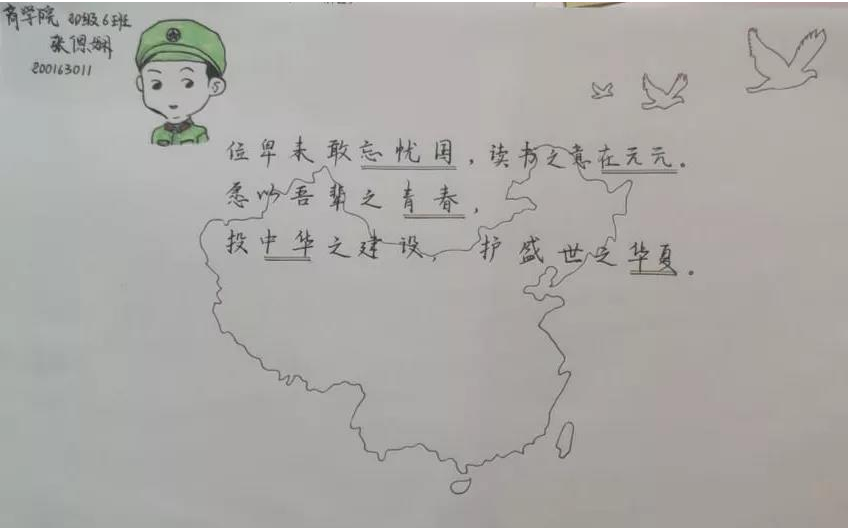 商学院 20级6班
张偲娴
200163011
位卑未敢忘忧国，读书之意在元元。
愿以吾辈之青春，
投中华之建设，护盛世之华夏。